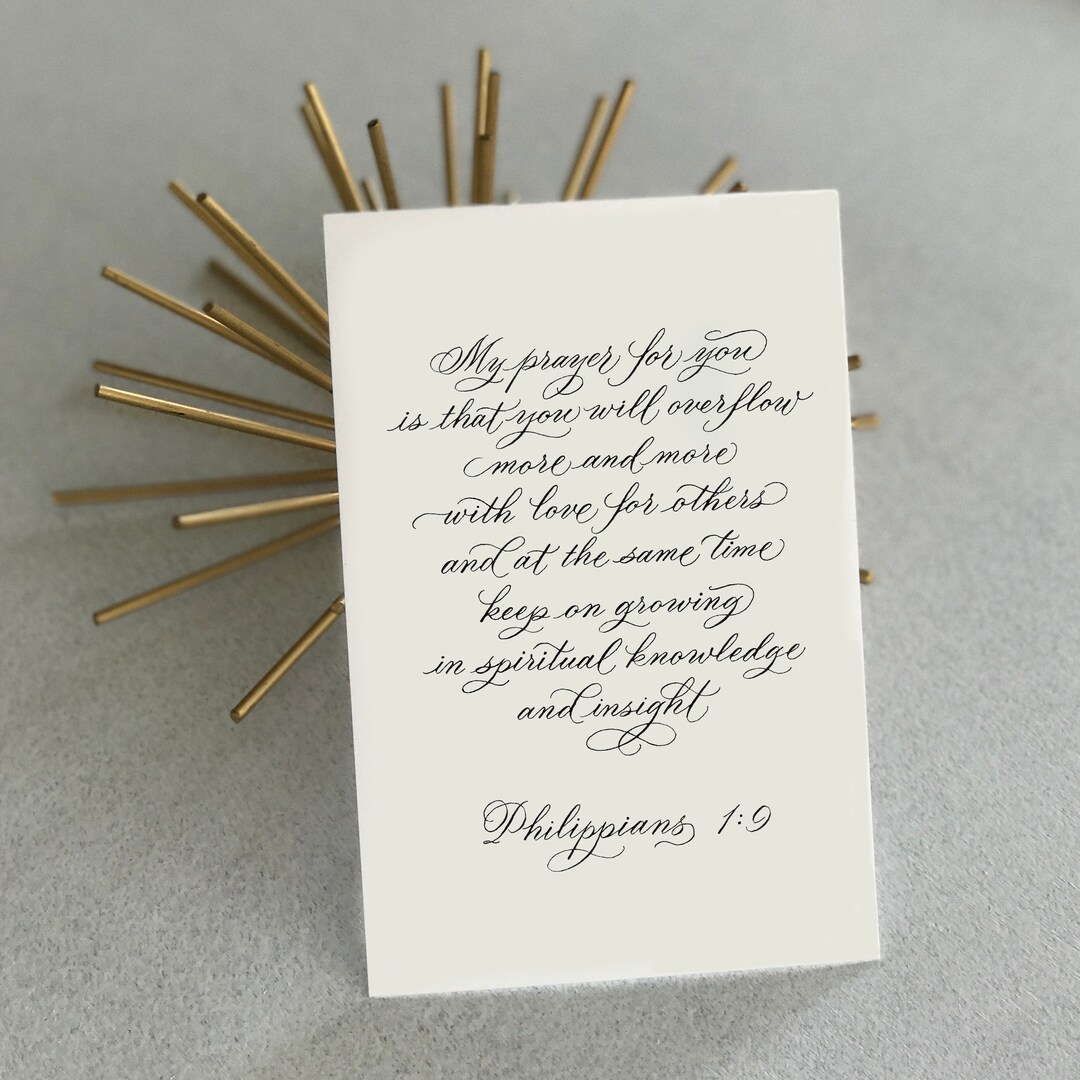 My prayer for you
is that you will overflow
more and more
with love for others
and at the same time
keep on growing
in spiritual knowledge
and insight
Philippians 1:9